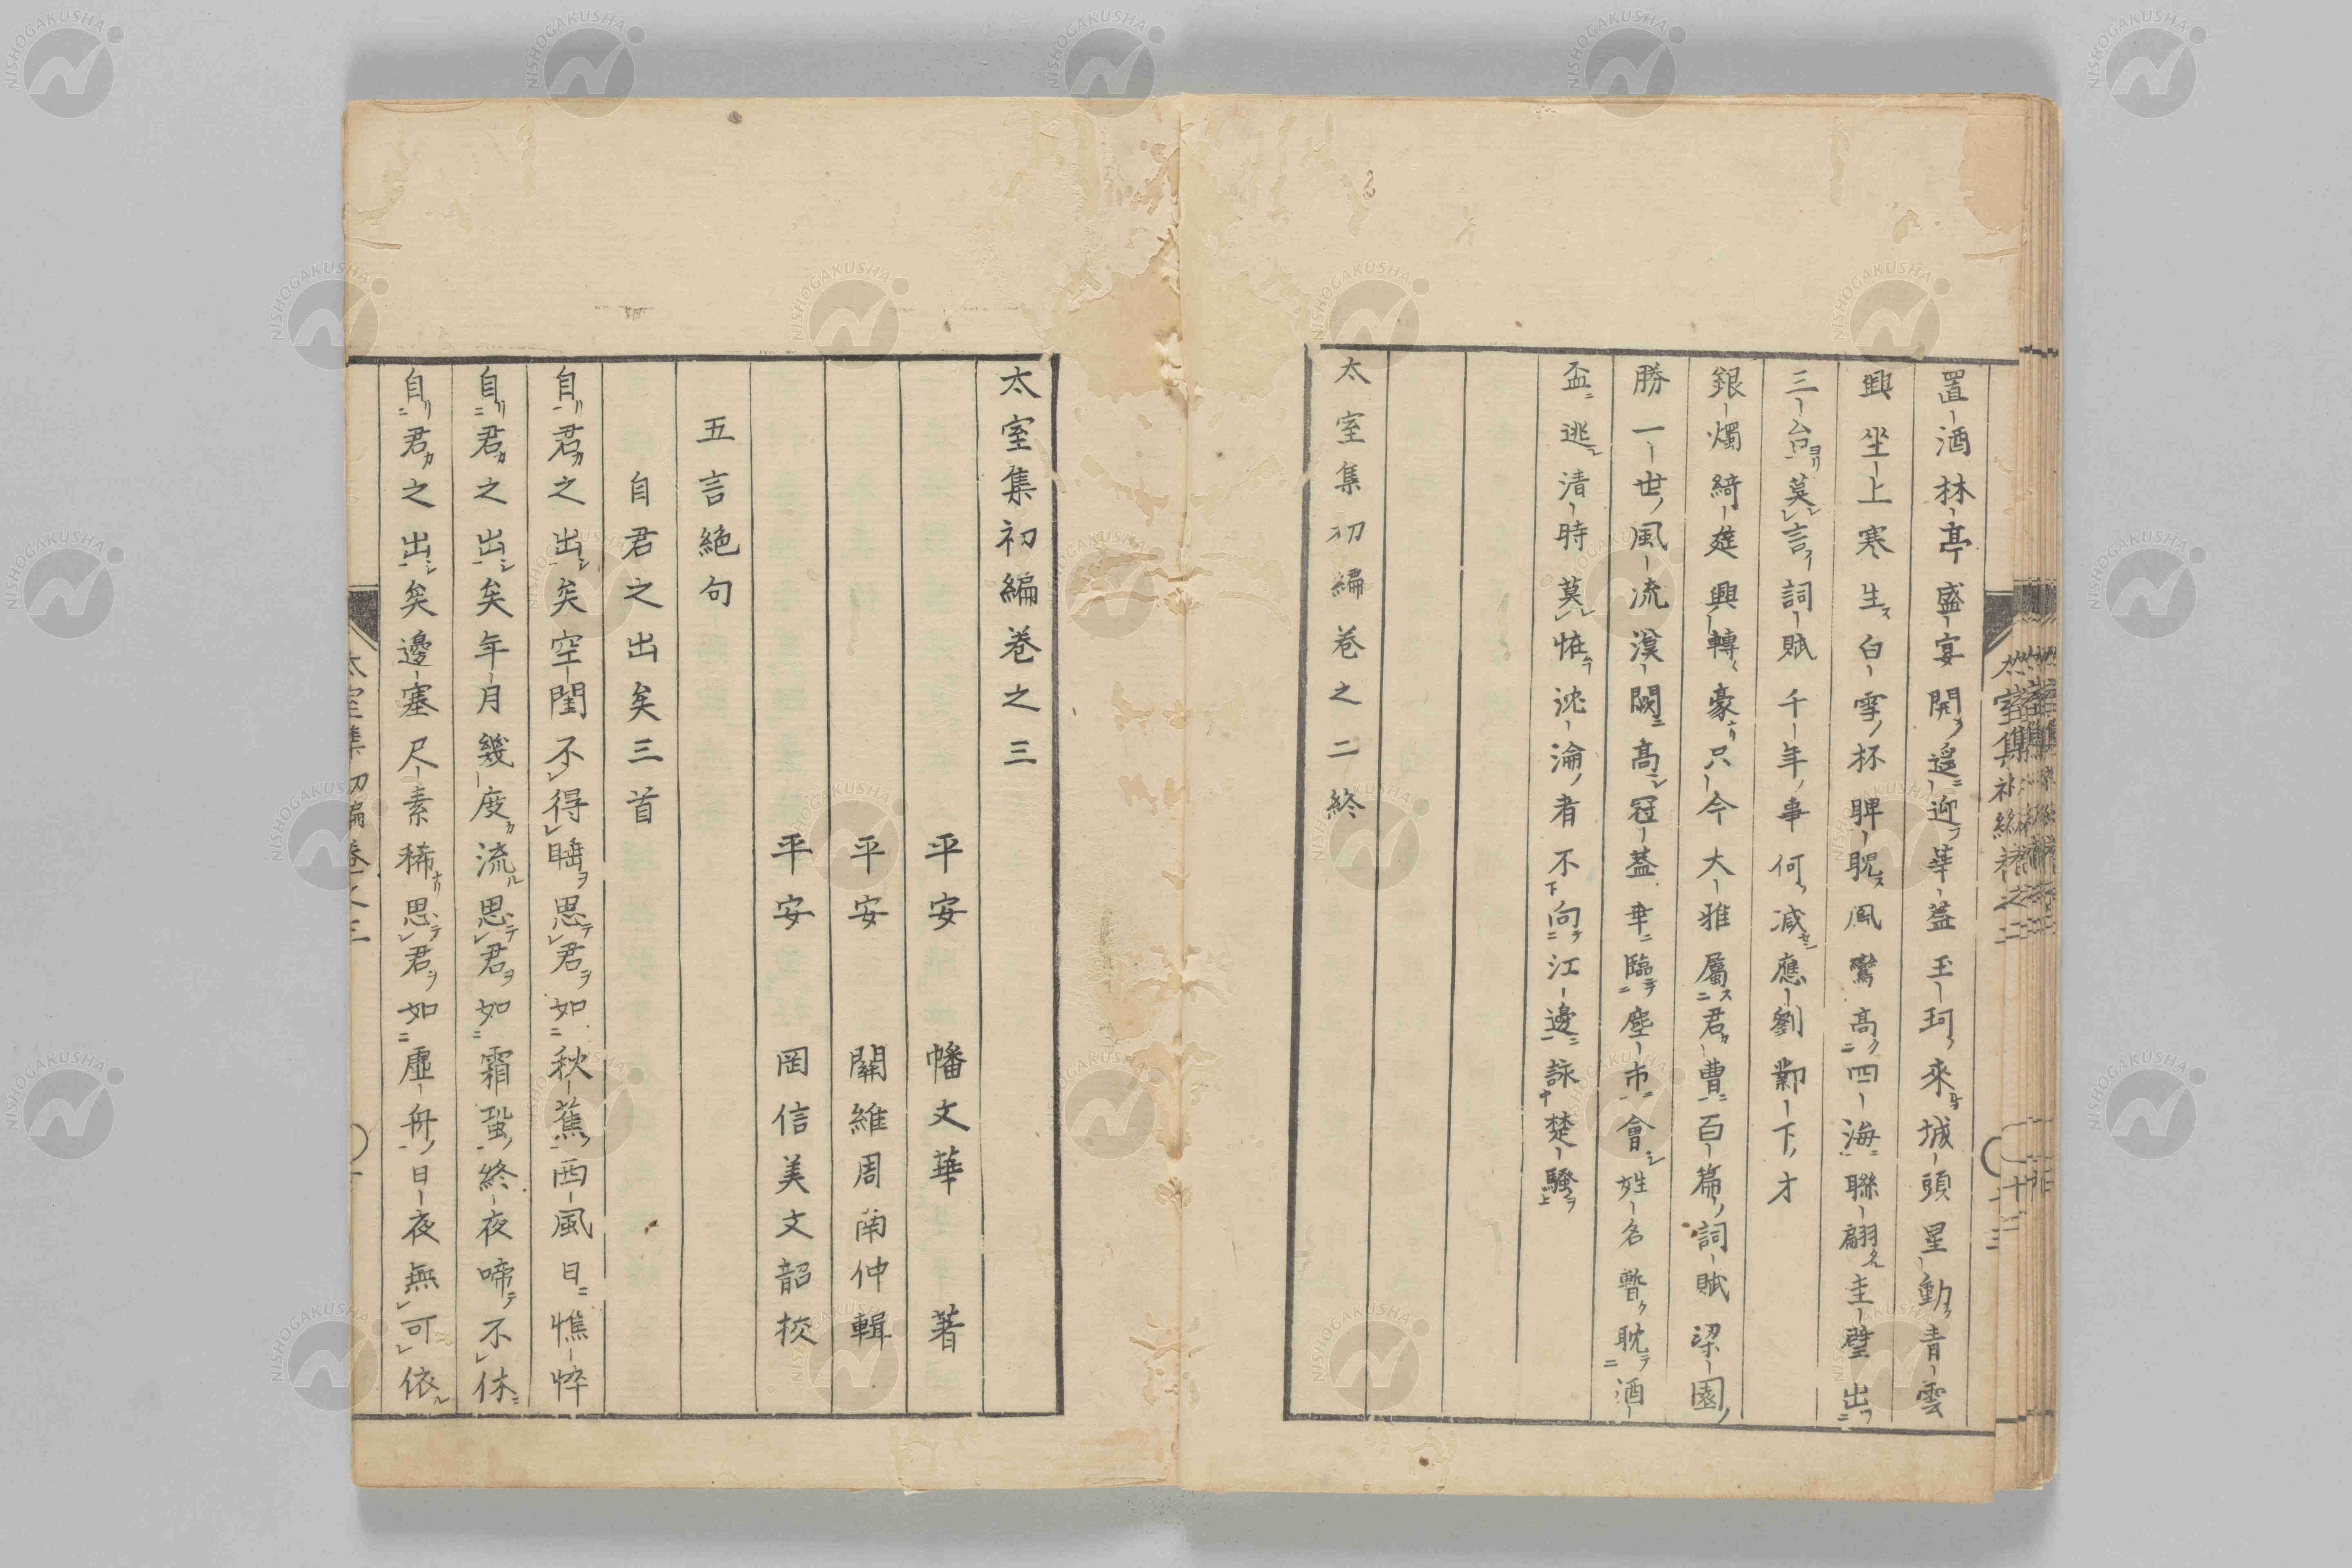 置酒林亭盛宴開遥迎華蓋玉珂來城頭星動青雲
興坐上寒生白雪杯睥睨風鸞高四海聯翩圭璧出
三台莫言詞賦千年事何減應劉鄴下才
銀燭綺筵興轉豪只今大雅屬君曹百篇詞賦梁園
勝一世風流漢闕高冠蓋聿臨塵市會姓名暫耽酒
盃逃清時莫怪沈淪者不向江邊詠楚騷
太室集初編卷之二終
太室集初編卷之三
平安 幡文華 著
平安 關維周南仲輯
平安 岡信美文韶挍
五言絕句
自君之出矣三首
自君之出矣空閨不得晤思君如秋蕉西風日憔悴
自君之出矣年月幾度流思君如霜蛩終夜啼不休
自君之出矣邊塞尺素稀思君如虛舟日夜無可依
太室集初編卷之三
NISHOGAKUSHA